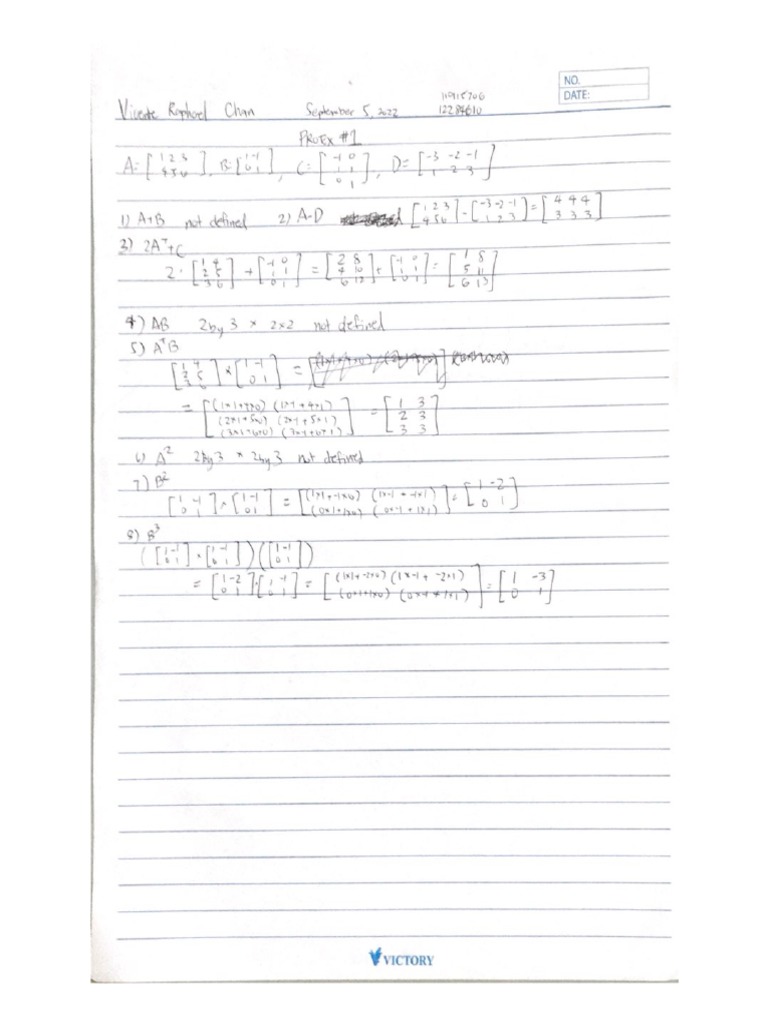 NO.
DATE:
Vicente Raphael Chan September 5, 2022 12284610
PRUEX #1
A = [1 2 3; 4 5 6], B = [1 -1; 0 1], C = [-1 0; 1 1; 0 1], D = [-3 -2 -1; 1 2 3]
1) A+B not defined 2) A-D [1 2 3; 4 5 6] - [-3 -2 -1; 1 2 3] = [4 4 4; 3 3 3]
3) 2Aᵀ+C
2 · [1 4; 2 5; 3 6] + [-1 0; 1 1; 0 1] = [2 8; 4 10; 6 12] + [-1 0; 1 1; 0 1] = [1 8; 5 11; 6 13]
4) AB 2 by 3 × 2x2 not defined
5) AᵀB
[1 4; 2 5; 3 6] × [1 -1; 0 1] =
= [(1x1+4x0) (1x-1+4x1); (2x1+5x0) (2x-1+5x1); (3x1+6x0) (3x-1+6x1)] = [1 3; 2 3; 3 3]
6) A² 2 by 3 × 2 by 3 not defined
7) B²
[1 -1; 0 1] × [1 -1; 0 1] = [(1x1+-1x0) (1x-1+-1x1); (0x1+1x0) (0x-1+1x1)] = [1 -2; 0 1]
8) B³
([1 -1; 0 1] × [1 -1; 0 1]) ([1 -1; 0 1])
= [1 -2; 0 1] · [1 -1; 0 1] = [(1x1+-2x0) (1x-1+-2x1); (0x1+1x0) (0x-1+1x1)] = [1 -3; 0 1]
VICTORY